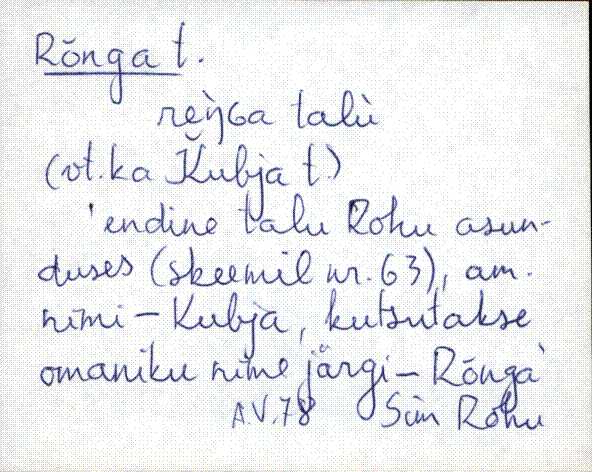 Rõnga t.
reŋ̀ɢa talù
(vt. ka Kubja t.)
'endine talu Rohu asun-
duses (skeemil nr. 63), am.
nimi – Kubja, kutsutakse
omaniku nime järgi – Rõnga'
A.V. 78 Sim Rohu